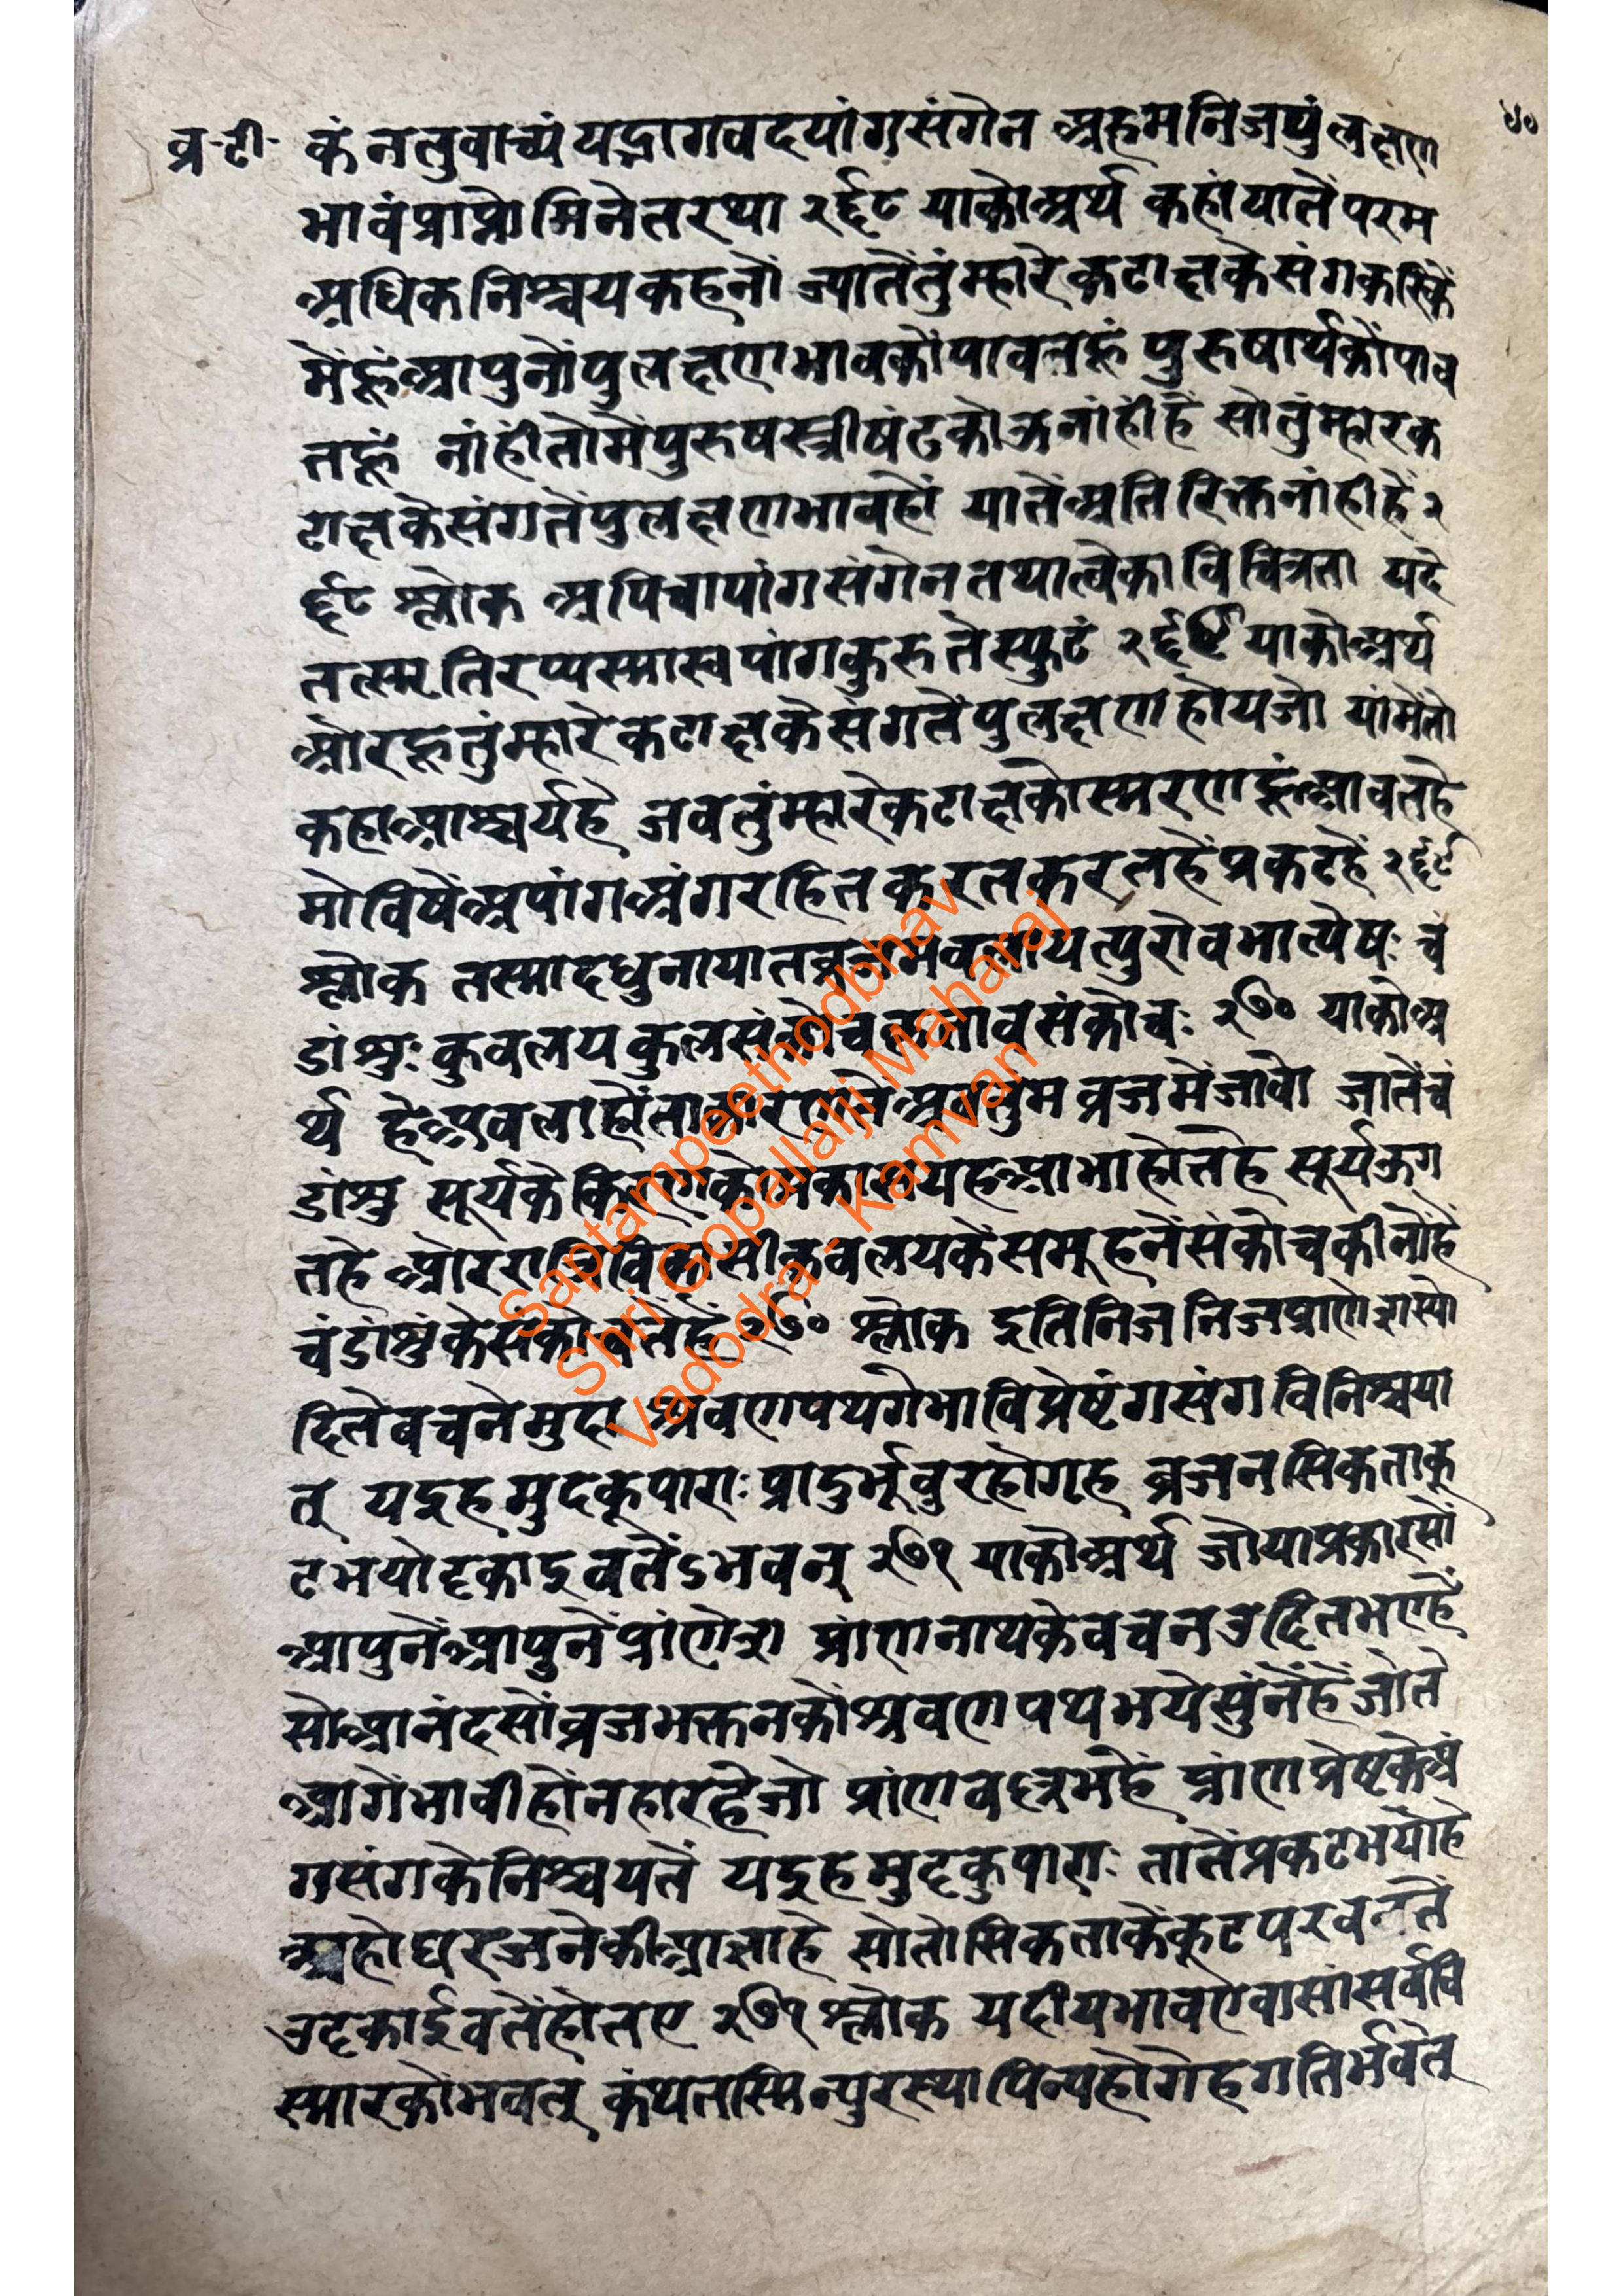 व्र-टी- कं नतुवाच्यं यद्रागवदपांगसंगेन अहमनिजपुंलक्षण ५०
भावंप्राप्नोमिनेतरथा २६८ याकोअर्थ कहांयातेंपरम
अधिकनिश्चयकहनों ज्यातेंतुंम्हारेकटाक्षकेसंगकरिकें
मेंहूंआपुनोंपुंलक्षणभावकोंपावतहूं पुरुषार्थकोंपाव
तहूं नांहींतोमेंपुरुषस्त्रीषंढकोऊनांहींहैं सोतुंम्हारेक
टाक्षकेसंगतेंपुलक्षणभावहों यातेंअतिरिक्तनांहीहैं २
६८ श्लोक अपिचापांगसंगेनतथात्वेकाविचित्रता यदे
तत्स्मृतिरप्यस्मास्वपांगकुरुतेस्फुटं २६९ याकोअर्थ
औरहूतुंम्हारेकटाक्षकेसंगतेंपुलक्षणहोयजो यांमेंतो
कहाआश्चर्यहै जबतुंम्हारेकटाक्षकोस्मरणहूंआवतहे
मोविषेंअपांगअंगरहितकरतकरतहेंप्रकटहैं २६९
श्लोक तस्मादधुनायातव्रजमबलायत्पुरोवभात्येषः चं
डांशुः कुवलयकुलसंकोचकृतावसंकोचः २७० याकोअ
र्थ हेअबलाहोंताकारणतेंअबतुमव्रजमेंजावो जातेंचं
डांशु सूर्यकेकिरणकोप्रकाशयहआभाहोतहे सूर्यऊग
तहे औररात्रिविकासीकुवलयकेसमूहनेंसंकोचकीनोंहैं
चंडांशुंकेसंकोचतेंहें २७० श्लोक इतिनिजनिजप्राणेशास्यो
दितेवचनेमुदा श्रवणपथगेभाविप्रेष्टंगसंगविनिश्चया
त् यदुहमुदकूपाराः प्रादुर्भूवुरहोगृह व्रजनसिकताकू
टभयोदृकादुवतेंऽभवन् २७१ याकोअर्थ जोयाप्रकारसों
आपुनेंआपुनेंप्रांणेश प्रांणनाथकेवचनउदितभएहैं
सोआनंदसोंव्रजभक्तनकोंश्रवणपथभयेसुंनेंहेंजोते
आगेंभावीहोंनहारहैजो प्रांणवल्लभहें प्रांणप्रेष्टकेअं
गसंगकेनिश्चयतें यदुहमुदकूपाराः तातेंप्रकटभयोहे
अहोघरऊजनेकीआज्ञाहे सोतोसिकताकेंकूटपरवततें
उदृकाईवतेंहोतए २७१ श्लोक यदीयभावएवासांसर्ववि
स्मारकोभवत् कंथतस्मिन्पुरस्थापिन्यहोगेहगतिर्भवेत्